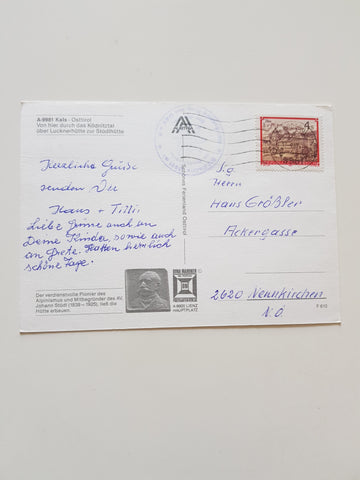 A-9981 Kals · Osttirol
Von hier durch das Ködnitztal
über Lucknerhütte zur Stüdlhütte
Herzliche Grüße
senden Dir
Hans + Tilli.
Liebe Grüße auch an
Deine Kinder, sowie auch
an Grete. Hatten herrlich
schöne Tage.
Der verdienstvolle Pionier des
Alpinismus und Mitbegründer des AV,
Johann Stüdl (1839 – 1925), ließ die
Hütte erbauen.
A-9900 LIENZ
HAUPTPLATZ
4
S.g.
Herrn
Hans Größler
Ackergasse
2620 Neunkirchen
N.Ö.
F 610